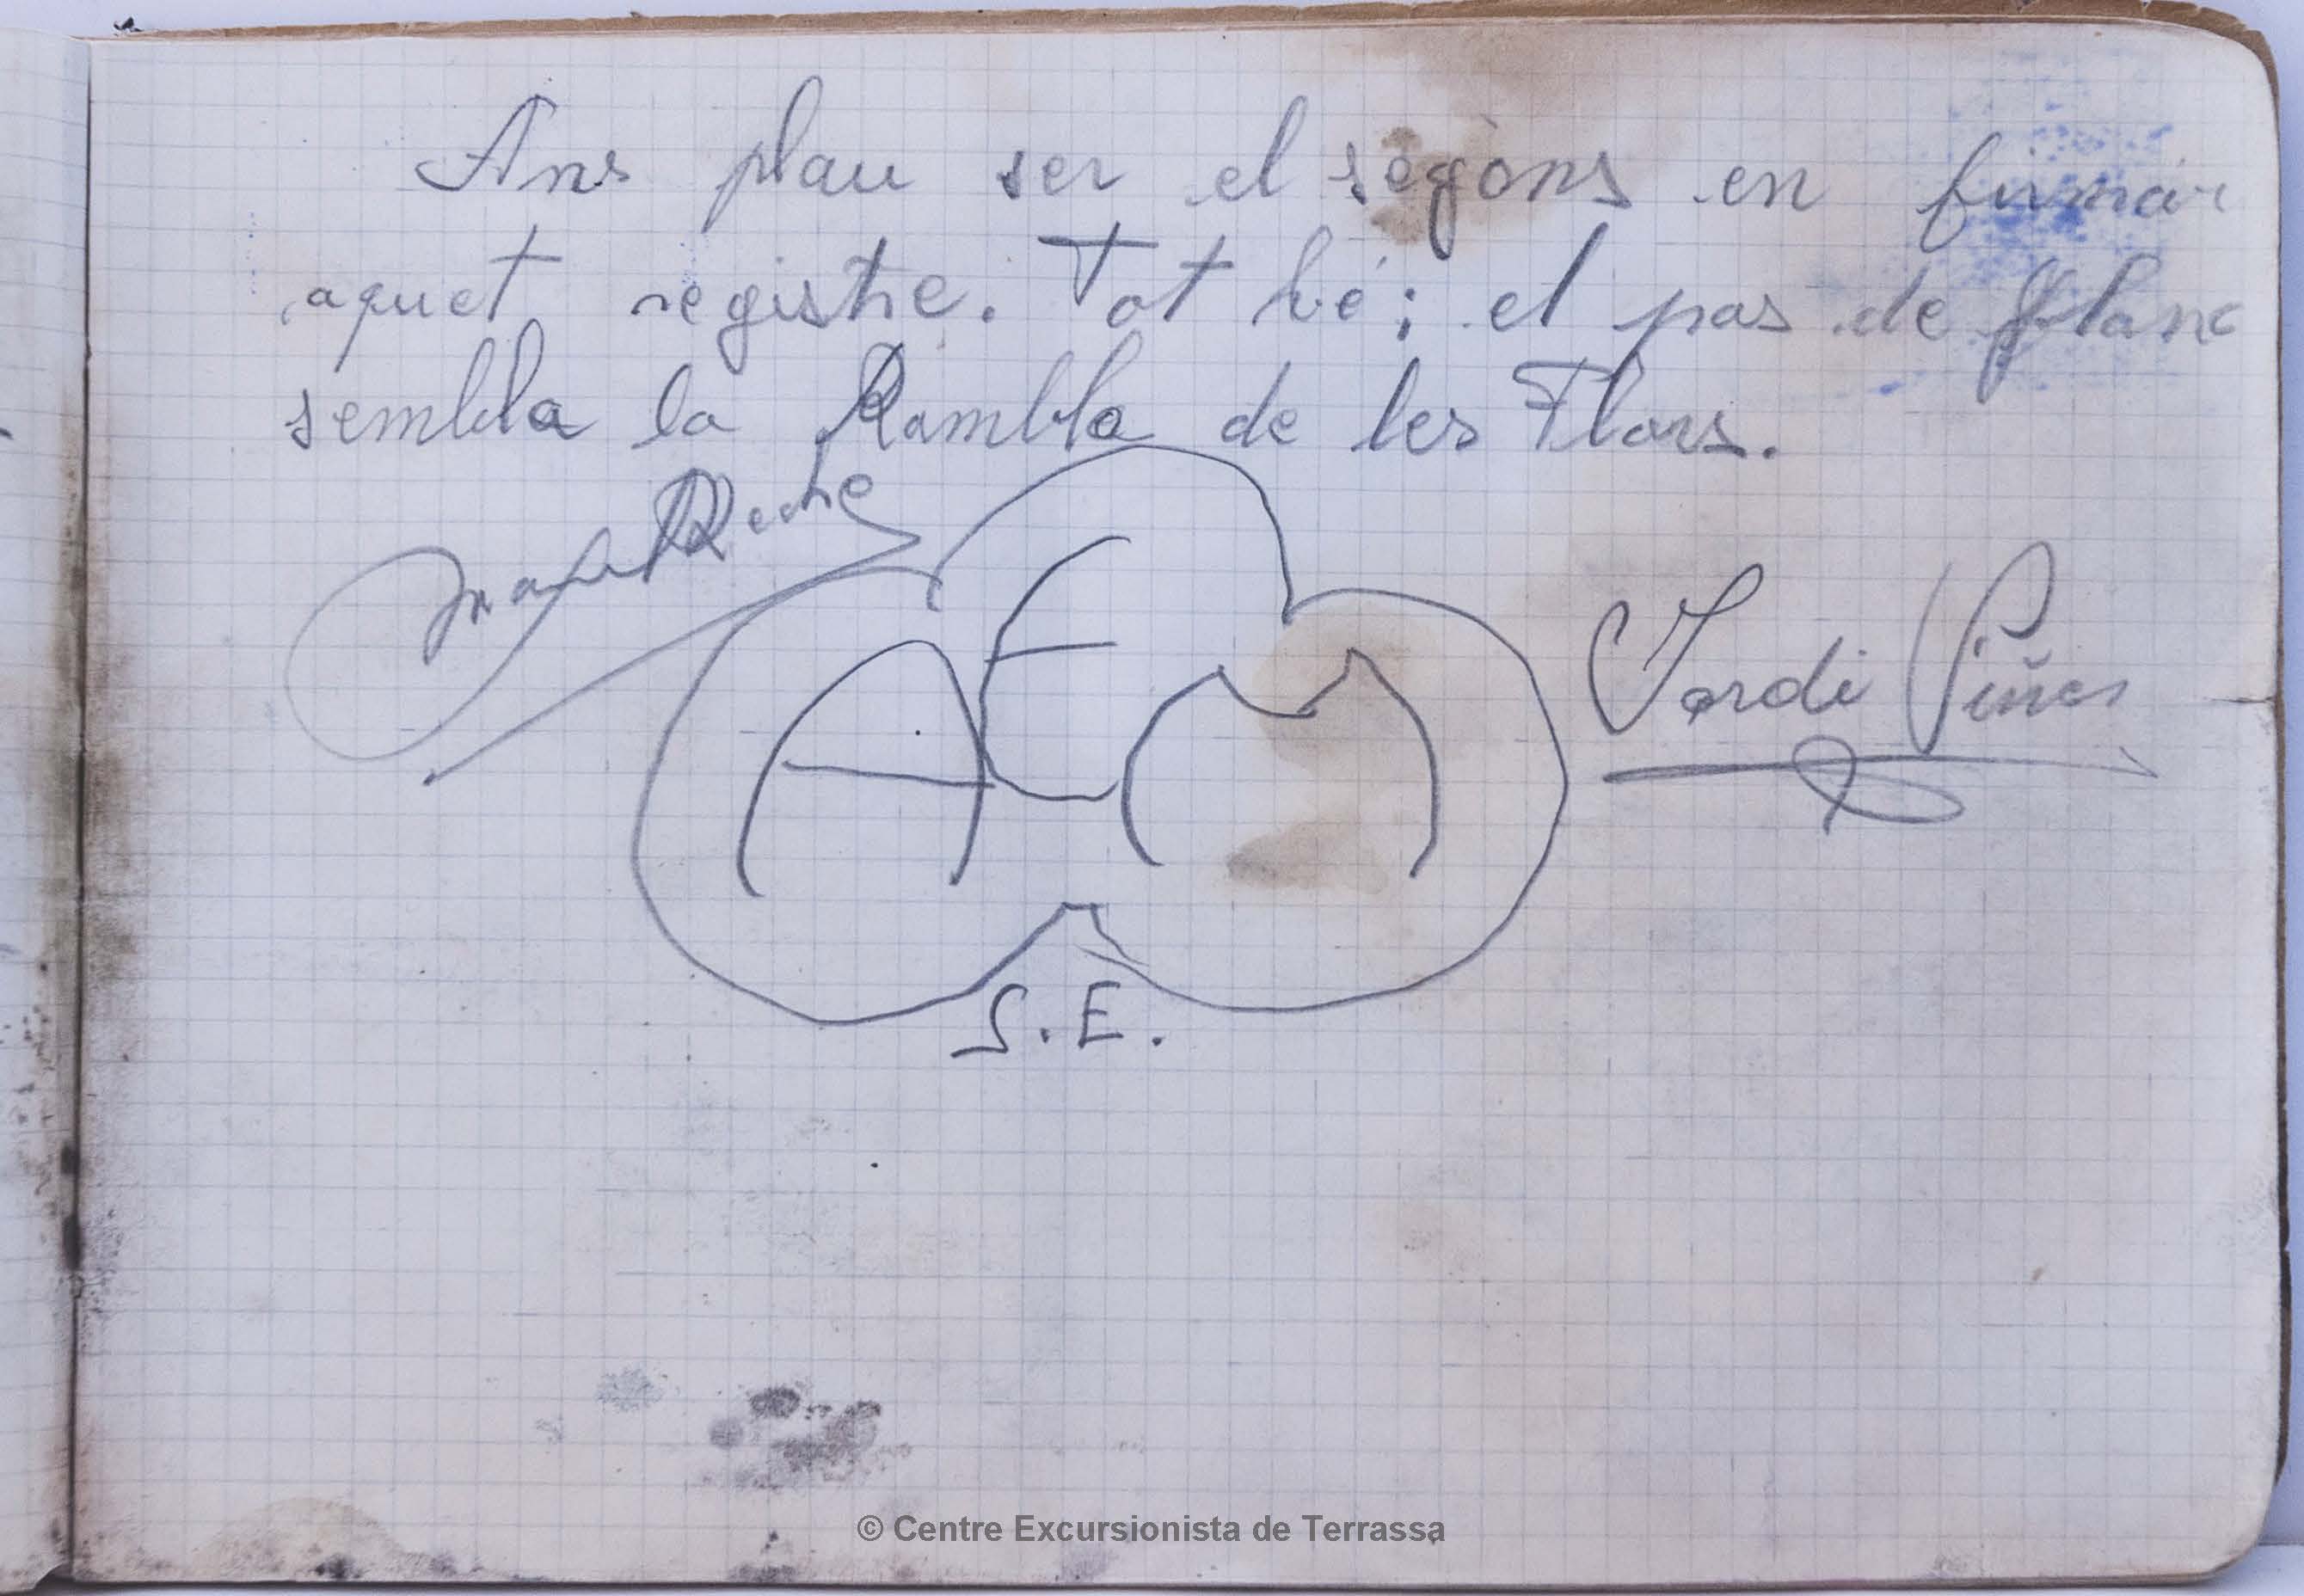 Ans plau ser el segòns en firmar
aquet registre. Tot bé; el pas de flanc
sembla la Rambla de les Flors.
AEC
Jordi Piñes
S.E.
© Centre Excursionista de Terrassa